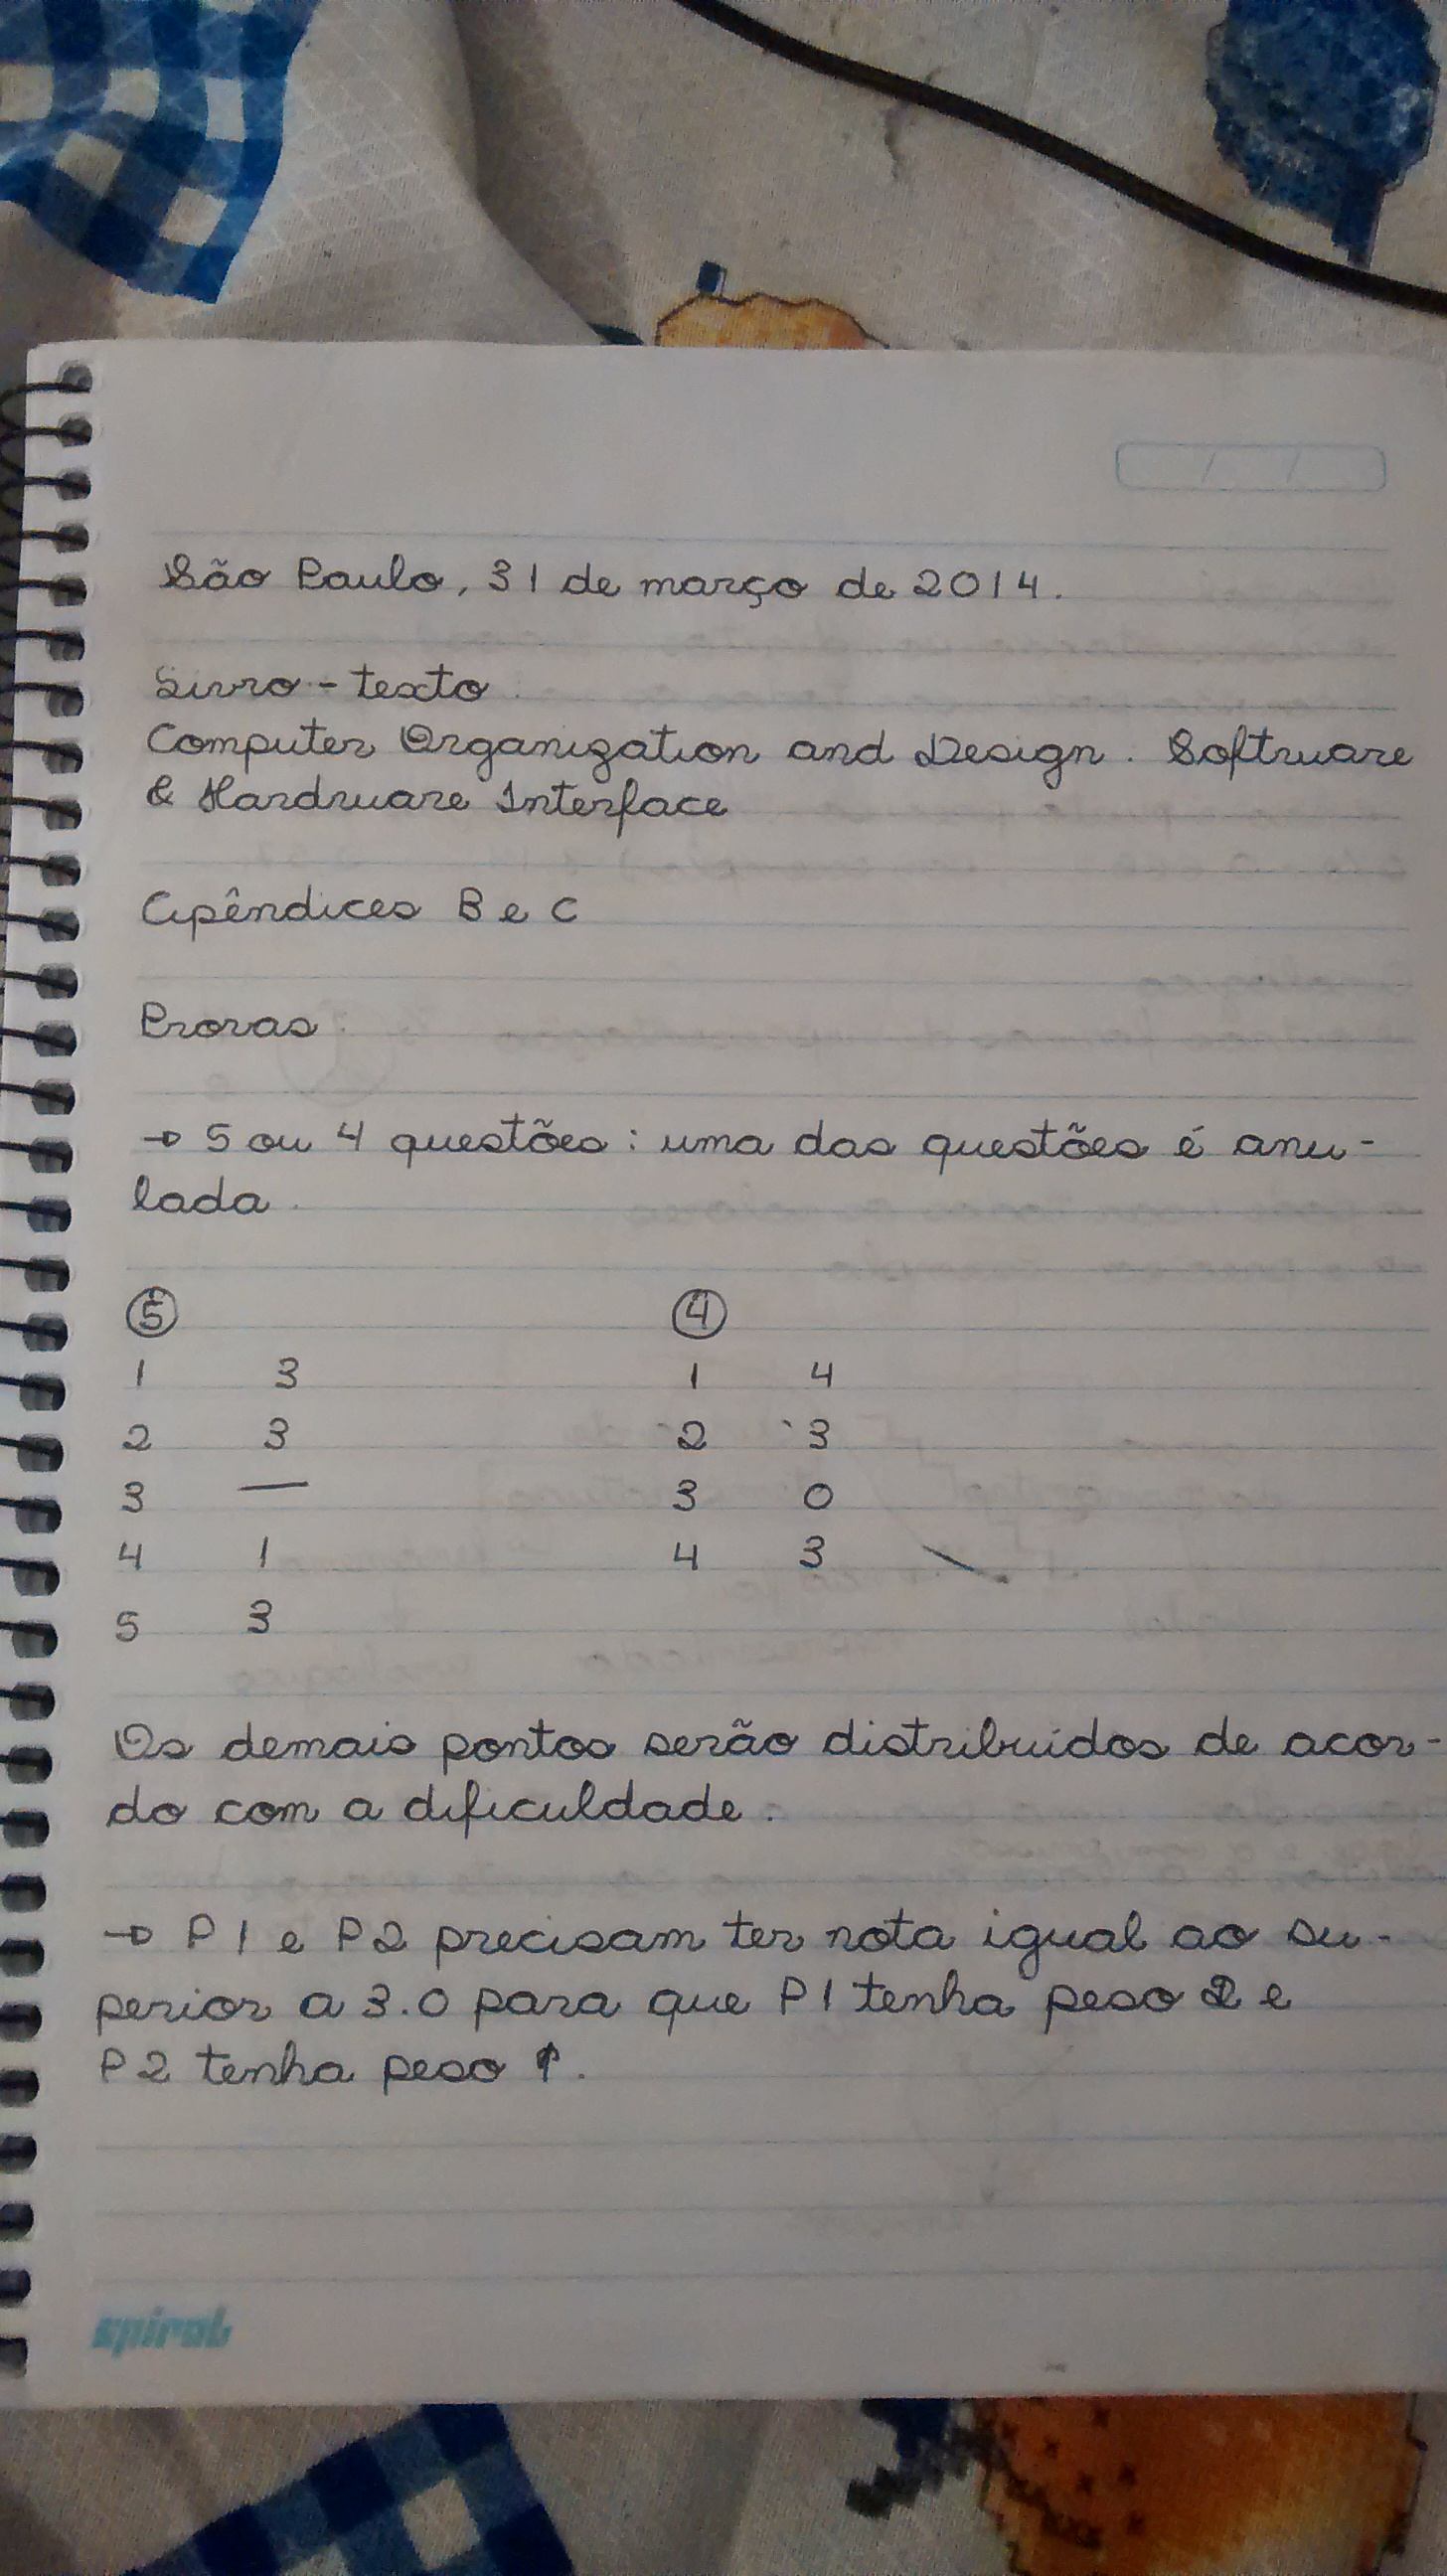 São Paulo, 31 de março de 2014.
Livro-texto
Computer Organization and Design. Software
& Hardware Interface
Apêndices B e C
Provas
→ 5 ou 4 questões: uma das questões é anu-
lada.
5 4
1 3 1 4
2 3 2 3
3 — 3 0
4 1 4 3
5 3
Os demais pontos serão distribuídos de acor-
do com a dificuldade.
→ P1 e P2 precisam ter nota igual ao su-
perior a 3.0 para que P1 tenha peso 2 e
P2 tenha peso 1.
spiral